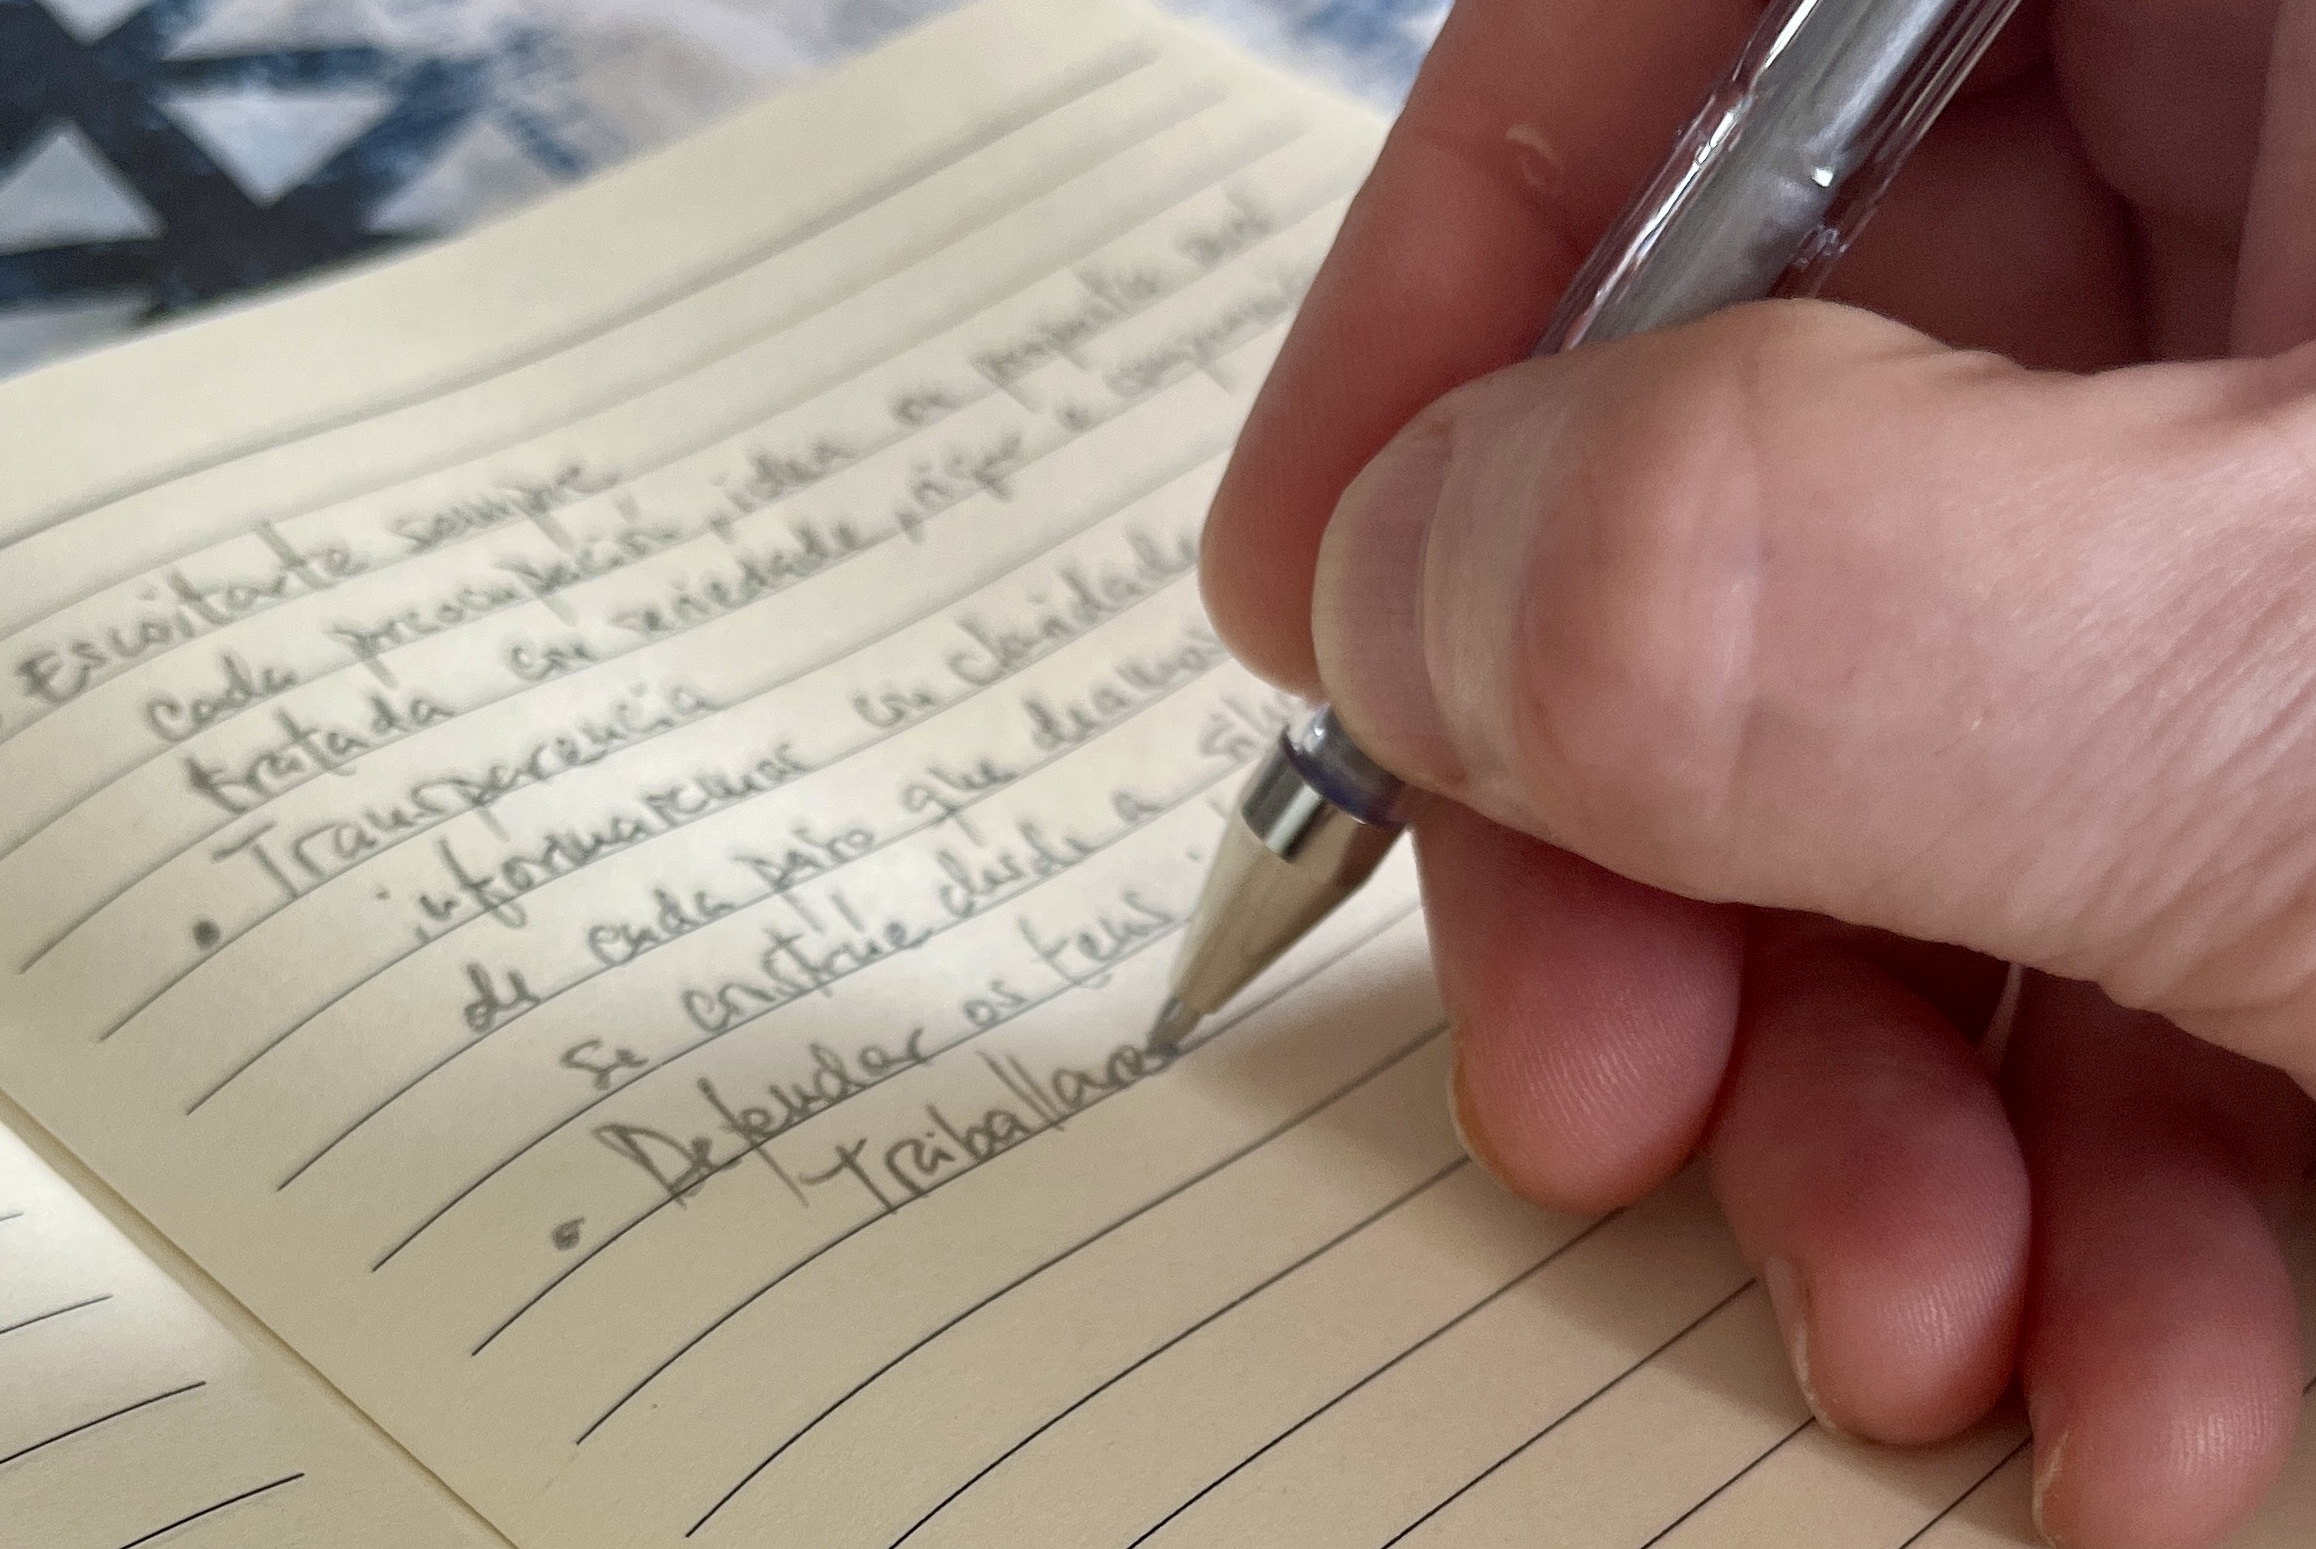 Escoitarte sempre
cada preocupación, idea ou proposta será
tratada con seriedade, rigor e
• Transparencia
informaremos con claridade
de cada paso que deamos
se constrúe desde a
• Defender os teus
Traballar